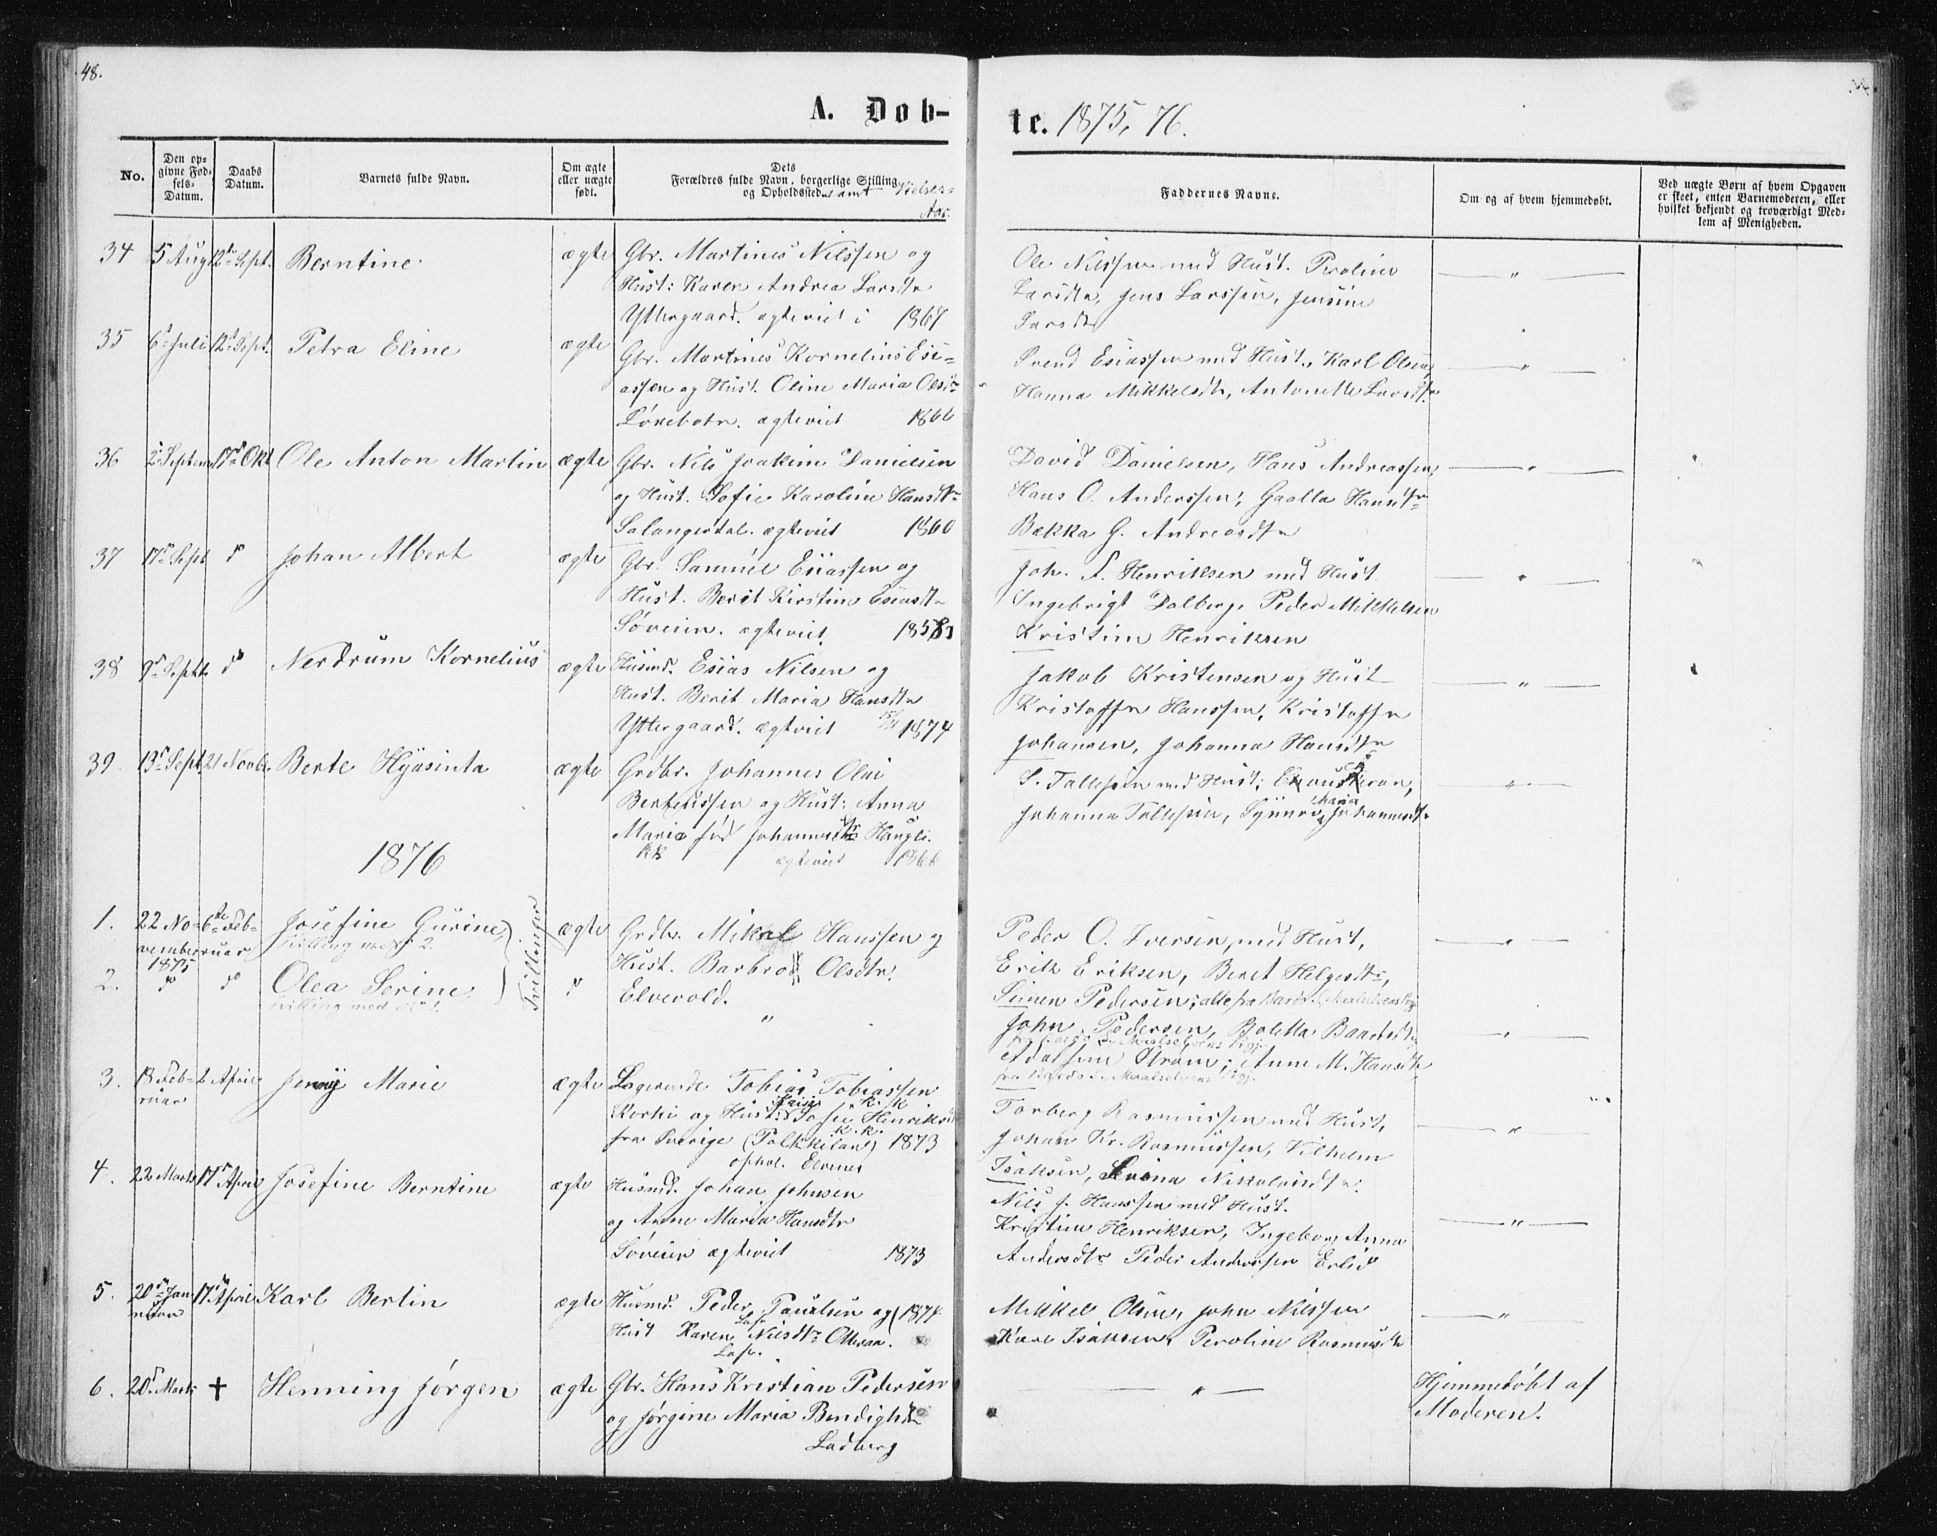 48.
A. Døb-
te. 1875, 76.
No.
Den op-
givne Fød-
sels-
Datum.
Daabs
Datum.
Barnets fulde Navn.
Om ægte
eller uægte
født.
Dets
Forældres fulde Navn, borgerlige Stilling
og Opholdssted samt Vielses-
Aar.
Faddernes Navne.
Om og af hvem hjemmedøbt.
Ved uægte Børn af hvem Opgaven
er skeet, enten Barnemoderen, eller
hvilket bekjendt og troværdigt Med-
lem af Menigheden.
34 5 Aug 12te Sept. Berntine ægte Gbr. Martines Nilssen og
Hust: Karen Andrea Larsdtr
Yttergaard. ægteviet i 1867
Ole Nilssen med Hust. Peroline
Larsdtr, Jens Larssen, Jensine
Larsdtr
35 6 Juli 12 Sept. Petra Eline ægte
Gbr. Martines Kornelius Esi-
assen og Hust. Oline Maria Olsdtr
Lønebotn. ægteviet 1866
Trend Esiassen med Hust., Karl Olsen,
Hanna Mikkelsdtr, Antonette Larsdtr
36 2 Septem 17 Okt Ole Anton Martin ægte Gbr. Nils Joakim Danielsen
og Hust. Sofie Karoline Hansdtr
Salangsdal. ægteviet 1860
David Danielsen, Hans Andreassen,
Hans O. Anderssen, Gaalla Hansdtr
Bækka G. Andreasdtr
37 17 Sept d Johan Albert ægte Gbr. Samuel Esiassen og
Hust. Berit Kirstine Esiasdtr
Søveien. ægteviet
Joh. A. Henriksen med Hust
Ingebrigt Dalberg, Peder Mikkelsen
Kristine Henriksen
38 9 Septbr d Nerdrum Kornelius ægte Husmd. Esias Nilsen og
Hust. Berit Maria Hansdtr
Yttergaard. ægteviet 1874
Jakob Kristensen og Hust
Kristoffer Hanssen, Kristoffer
Johansen, Johanna Hansdtr
39. 13 Sept 21 Novb. Berte Hyasinta ægte Grdbr. Johannes Olai
Berteussen og Hust: Anna
Maria fød Johannesdtr Haugli.
ægteviet 1866
S. Tollefsen med Hust;
Johanna Tollefsen, Synnev Maria Johannesdtr
1876
1. 22 No-
vember
1875 6te Feb-
ruar Josefine Gurine,
Tvilling med N 2. ægte Grdbr. Mikal Hanssen og
Hust. Barbro Olsdtr.
Elvevold.
Tvillinger
Peder O. Iversen med Hust,
Erik Eriksen, Beret Helgesdtr,
Simen Pedersen; alle fra Bardo S. Maalselvens Pgj
2. d d Olea Serine,
Tvilling med N 1. d
John Pedersen, Boletta Baardsdtr
fra Bardo S. Maalselvens Pgj.
Adalsem Strøm; Anne M. Hansdtr
fra Bardo S. Maalselvens Pgj.
3. 13 Feb-
ruar 2 April Jenny Marie ægte Logerende Tobias Tobiassen
Korki og Hust: Kaisa Sofie Henriksdtr
fra Sverige (Palkkilan) 1873
ophol. Elvenes
Torberg Rasmussen med Hust,
Johan Kr. Rasmussen, Vilhelm
Isaksen, Nikolaisdtr.
4. 22 Marts 17 April Josefine Berntine ægte Husmd. Johan Johnsen
og Anne Maria Hansdtr
Søveien ægteviet 1873
Nils J. Hanssen med Hust.
Kristine Henriksen, Ingeborg Anna
Andersdtr Peder Anderssen
5. 20 Jan-
nuar 17 April Karl Bertin ægte Husmd. Peder Paulsen og 1874
Hust Karen Nilsdtr
Lap.
Lap.
Mikkel Olsen, John Nilssen
Kare Isaksen, Peroline Rasmusdtr
6. 20 Marts † Henning Jørgen ægte Gbr. Hans Kristian Pedersen
og Jørgine Maria Bendigtsdtr
Ladberg
Hjemmedøbt af
Moderen.